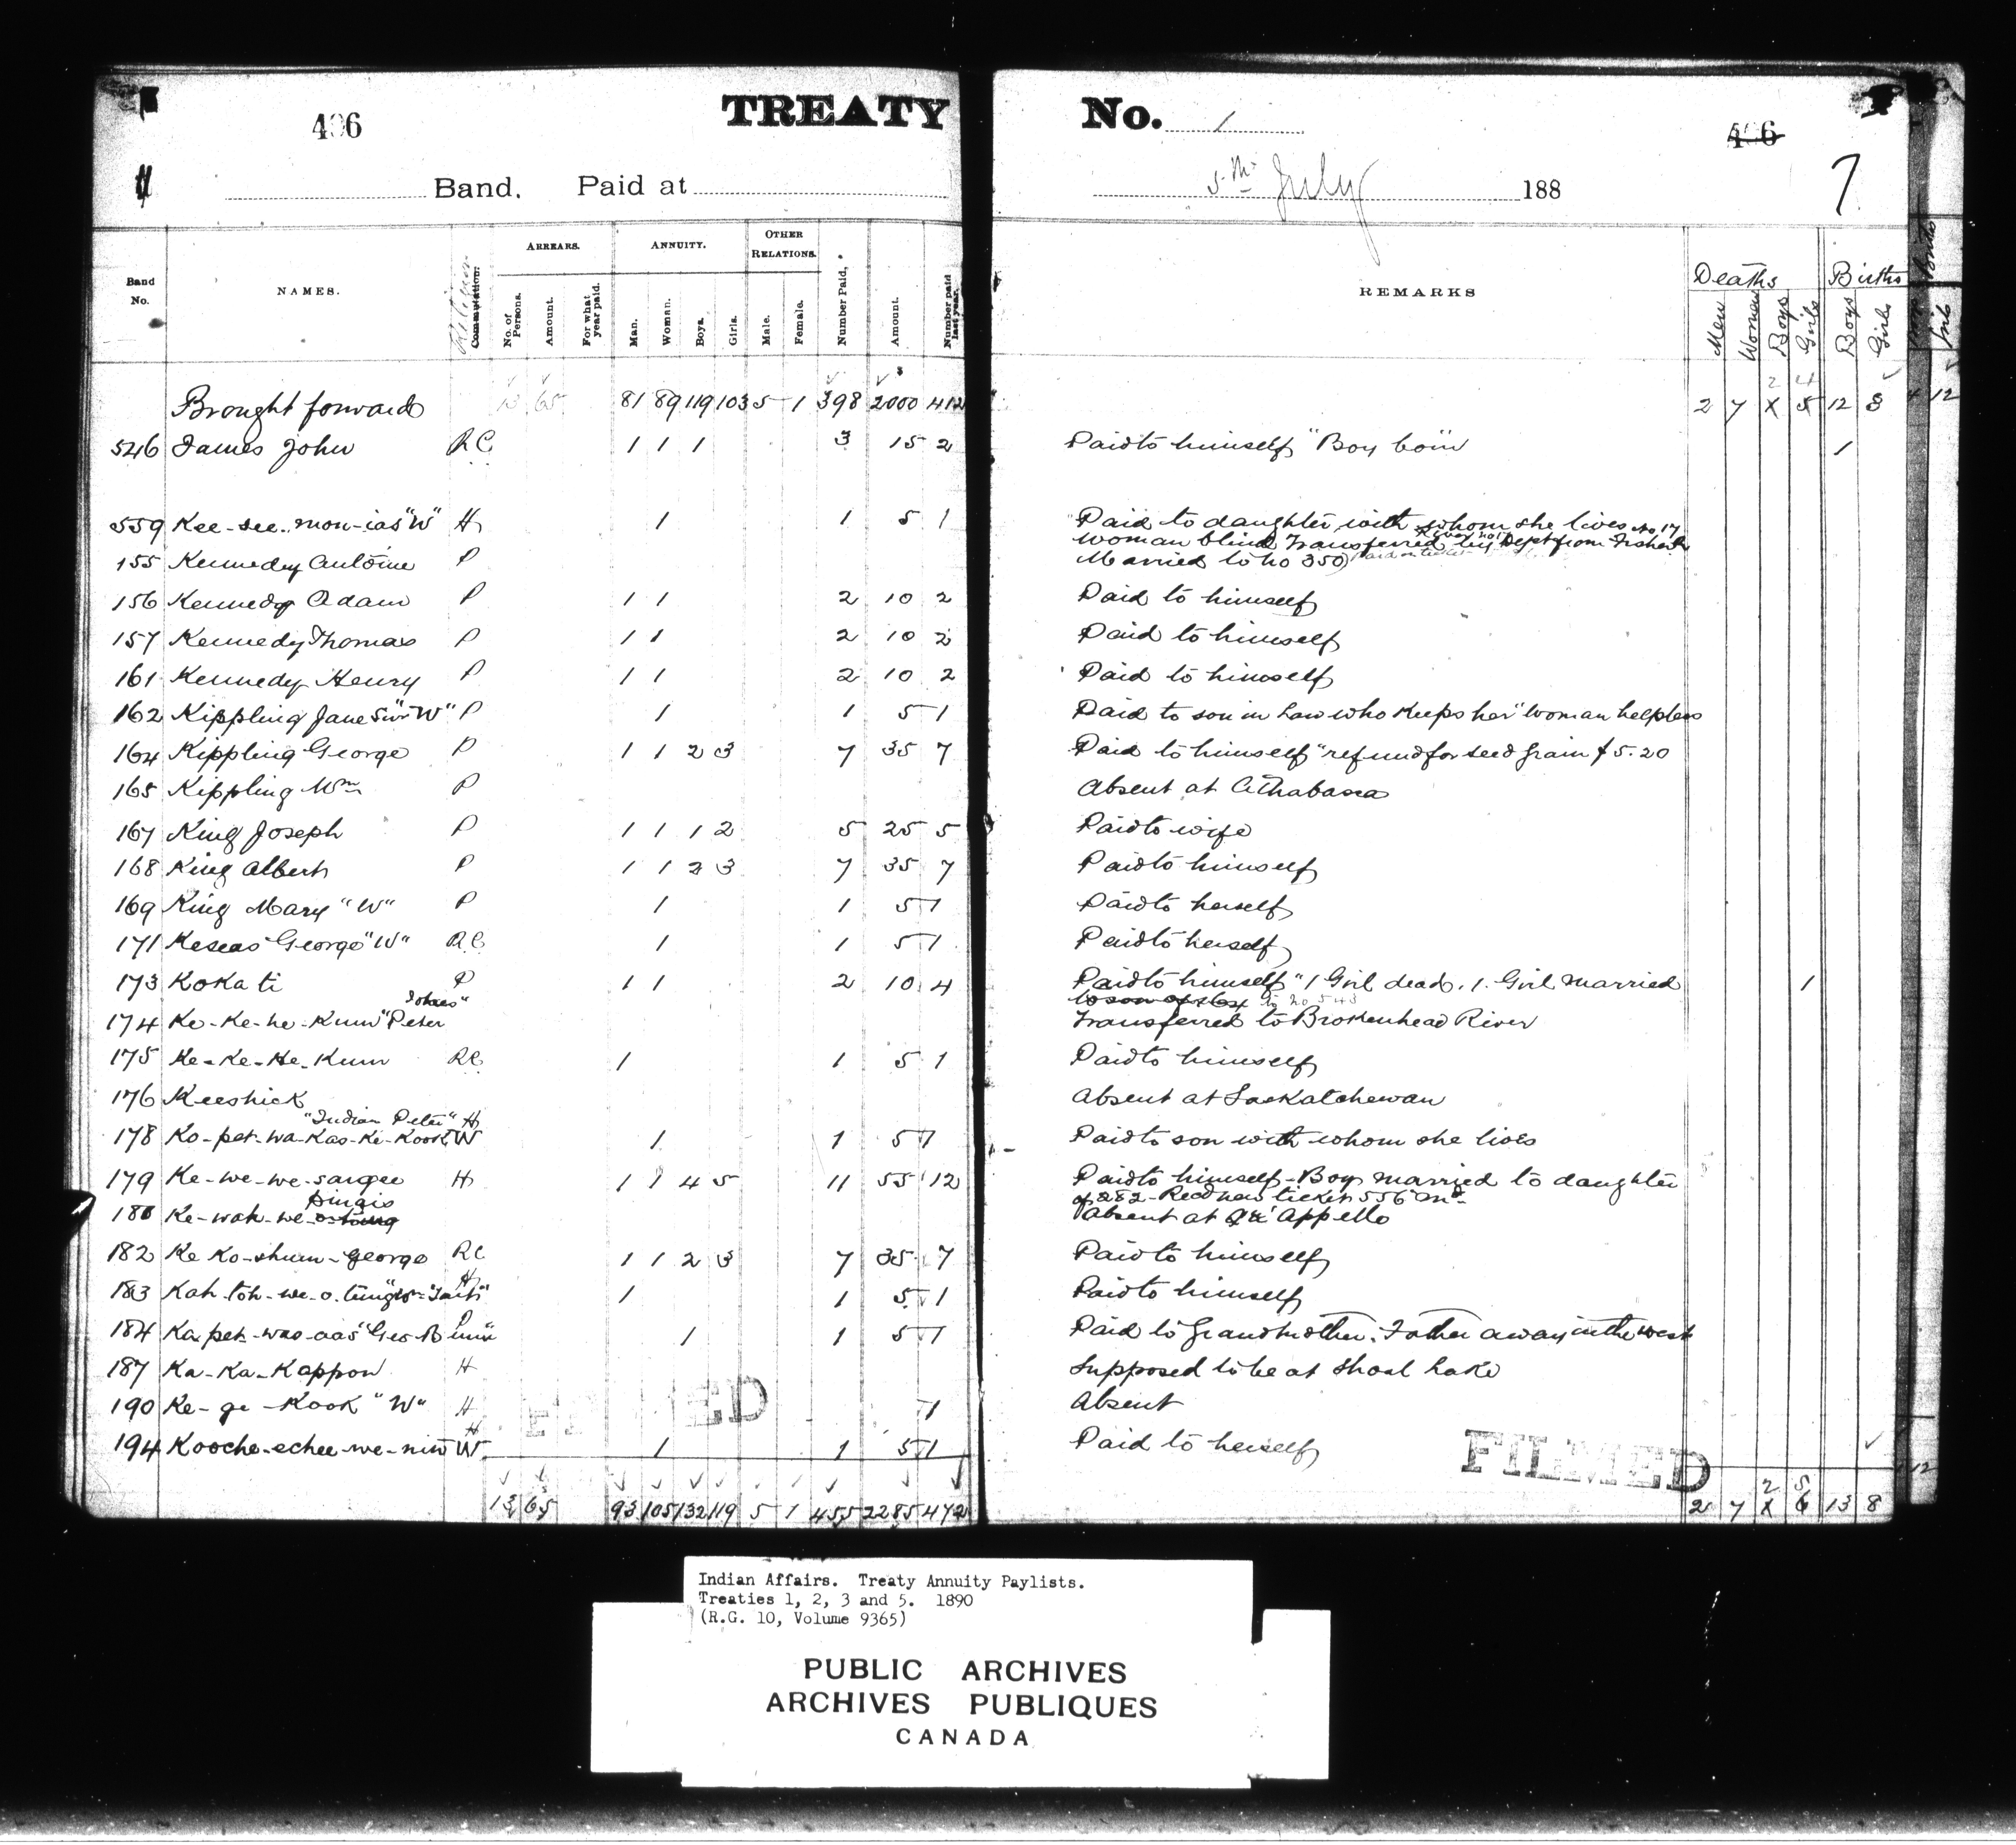 TREATY No. 1
Band. Paid at
5th July 188
7
Band No.
NAMES.
Commutation.
ARREARS.
No. of Persons.
Amount.
For what year paid.
ANNUITY.
Man.
Woman.
Boys.
Girls.
OTHER RELATIONS.
Male.
Female.
Number Paid,
Amount.
Number paid last year.
REMARKS
Deaths
Men
Women
Boys
Girls
Births
Boys
Girls
Brought forward 13 65 81 89 119 103 5 1 398 2000 412 2 7 X 5 12 8 4 12
2 4
546 James John RC 1 1 1 3 15 2 Paid to himself "Boy born" 1
559 Kee-see-mon-ias "W" H 1 1 5 1 Paid to daughter with whom she lives No 17
woman blind Transferred by Dept from Fisher R
155 Kennedy Antoine P Married to No 350
156 Kennedy Adam P 1 1 2 10 2 Paid to himself
157 Kennedy Thomas P 1 1 2 10 2 Paid to himself
161 Kennedy Henry P 1 1 2 10 2 Paid to himself
162 Kippling Jane Sinr "W" P 1 1 5 1 Paid to son in Law who Keeps her "woman helpless
164 Kippling George P 1 1 2 3 7 35 7 Paid to himself "refund for seed grain $5.20
165 Kippling Wm P Absent at Athabasca
167 King Joseph P 1 1 1 2 5 25 5 Paid to wife
168 King Albert P 1 1 2 3 7 35 7 Paid to himself
169 King Mary "W" P 1 1 5 1 Paid to herself
171 Keseas George "W" RC 1 1 5 1 Paid to herself
173 Koka ti P 1 1 2 10 4 Paid to himself "1 Girl dead, 1. Girl Married 1
to son of 164 to No 543
174 Ke-Ke-he-Kum "Peter Transferred to Brokenhead River
175 Ke-Ke-He-Kum RC 1 1 5 1 Paid to himself
176 Keeshick Absent at Saskatchewan
"Indian Peter" H
178 Ko-pet-wa-Kas-Ke-Kook W 1 1 5 1 Paid to son with whom she lives
179 Ke-we-we-sangee H 1 1 4 5 11 55 12 Paid to himself - Boy married to daughter
of 282 - Recd new ticket 556
Ke-wah-we- Absent at Qu'Appello
182 Ke Ko-shum-George RC 1 1 2 3 7 35 7 Paid to himself
183 Kah-toh-we-o-ting H 1 1 5 1 Paid to himself
184 Ka pet-was-aas "Geo P 1 1 5 1 Paid to Grandmother. Father away in the west
187 Ka-Ka-Kappow H Supposed to be at Shoal Lake
190 Ke-ge-Kook "W" H 1 Absent
194 Kooche-echee-we-nin W H 1 1 5 1 Paid to herself
FILMED
FILMED
13 65 93 105 132 119 5 1 455 2285 472 2 7 X 6 13 8
2 5
Indian Affairs. Treaty Annuity Paylists.
Treaties 1, 2, 3 and 5. 1890
(R.G. 10, Volume 9365)
PUBLIC ARCHIVES
ARCHIVES PUBLIQUES
CANADA